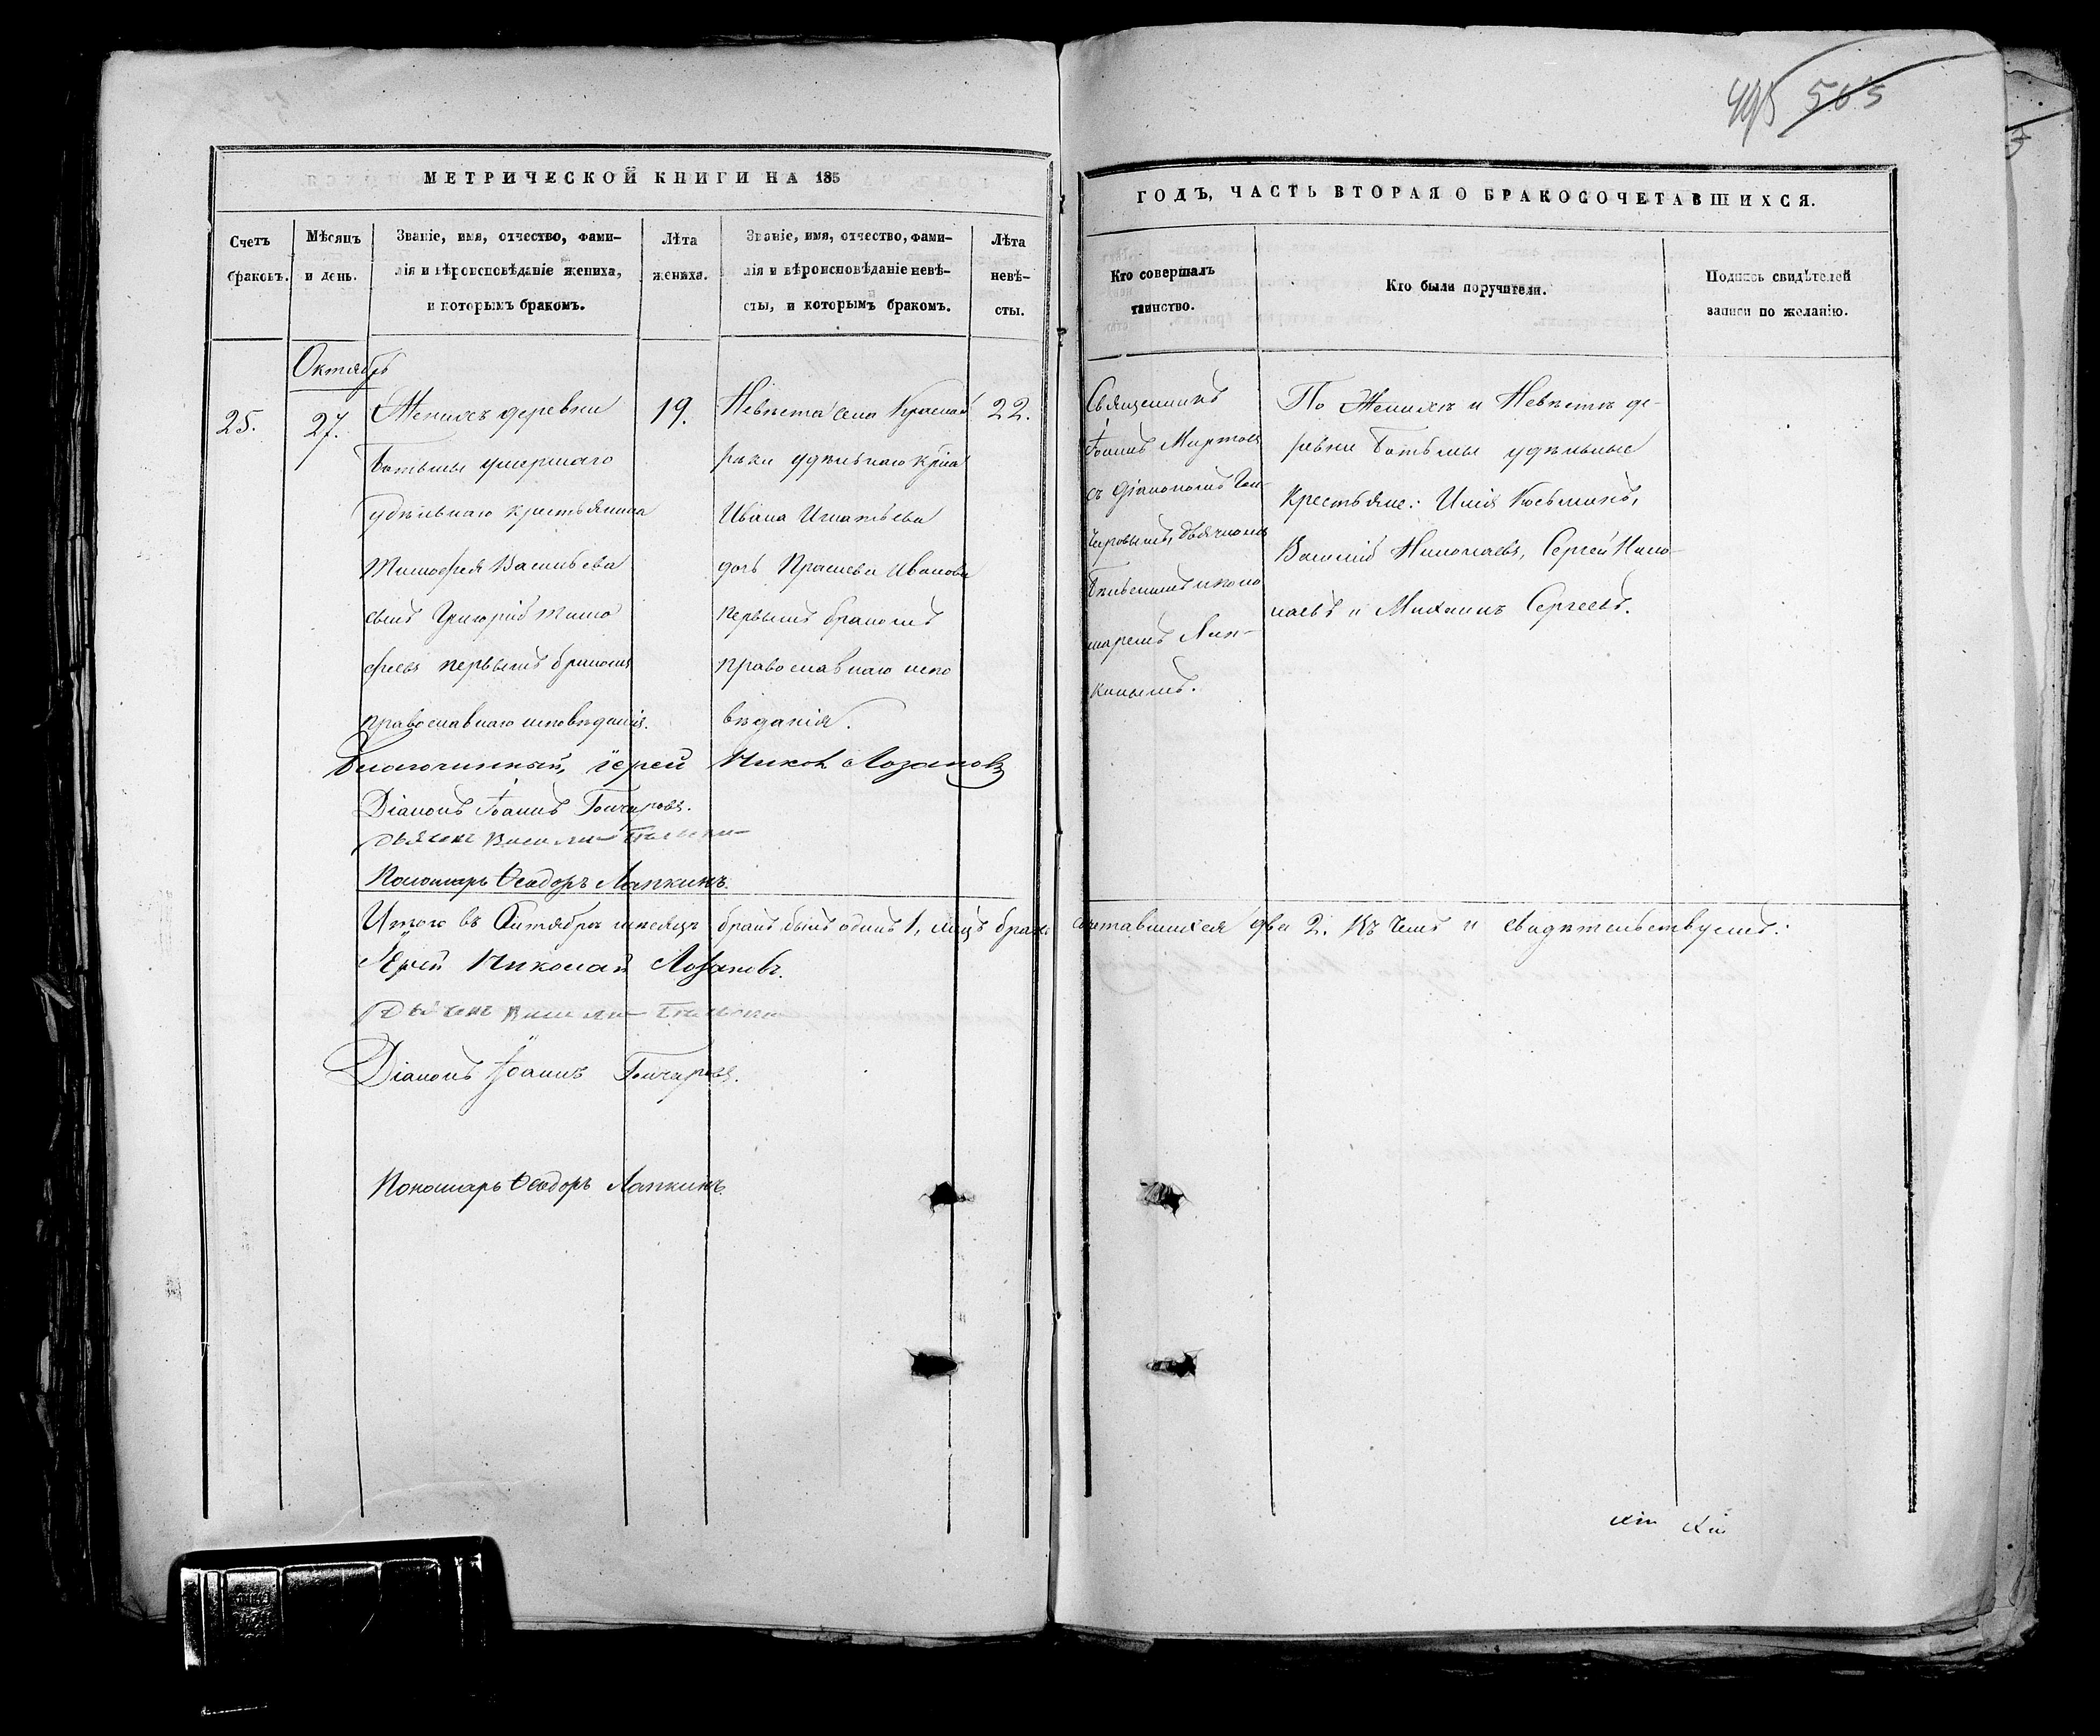 495 565
МЕТРИЧЕСКОЙ КНИГИ НА 185
ГОДЪ, ЧАСТЬ ВТОРАЯ О БРАКОСОЧЕТАВШИХСЯ.
Счетъ
браковъ.
Мѣсяцъ
и день.
Званіе, имя, отчество, фами-
лія и вѣроисповѣданіе жениха,
и которымъ бракомъ.
Лѣта
жениха.
Званіе, имя, отчество, фами-
лія и вѣроисповѣданіе невѣ-
сты, и которымъ бракомъ.
Лѣта
невѣ-
сты.
Кто совершалъ
таинство.
Кто были поручители.
Подпись свидѣтелей
записи по желанію.
Октябрь
25.
27.
Женихъ деревни
умершаго
удѣльнаго крестьянина
Тимофея Васильева
сынъ Григорій Тимо
феевъ первымъ бракомъ
православнаго исповѣданія.
19.
Невѣста села Красной
рѣки удѣльнаго кр-на
Ивана Игнатьева
дочь Прасковья Иванова
первымъ бракомъ
православнаго испо
вѣданія.
22.
Священникъ
Іоаннъ Миртовъ
съ Діакономъ Гон-
чаровымъ, дьячкомъ
и поно
маремъ Лап-
кинымъ.
По Женихѣ и Невѣстѣ де-
ревни удѣльные
Крестьяне: Илія Косьминъ,
Василій Николаевъ, Сергей Нико-
лаевъ и Михаилъ Сергеевъ.
Благочинный, іерей Никол Лозановъ
Діаконъ Іоаннъ Гончаровъ.
Дьячекъ Василий
Пономарь Ѳеодоръ Лапкинъ.
Итого въ Октябрѣ мѣсяцѣ бракъ былъ одинъ 1, лицъ брако сочетавшихся два 2. Въ чемъ и свидѣтельствуемъ:
Іерей Николай Лозановъ.
Дьячекъ Василий
Діаконъ Іоаннъ Гончаровъ.
Пономарь Ѳеодоръ Лапкинъ.